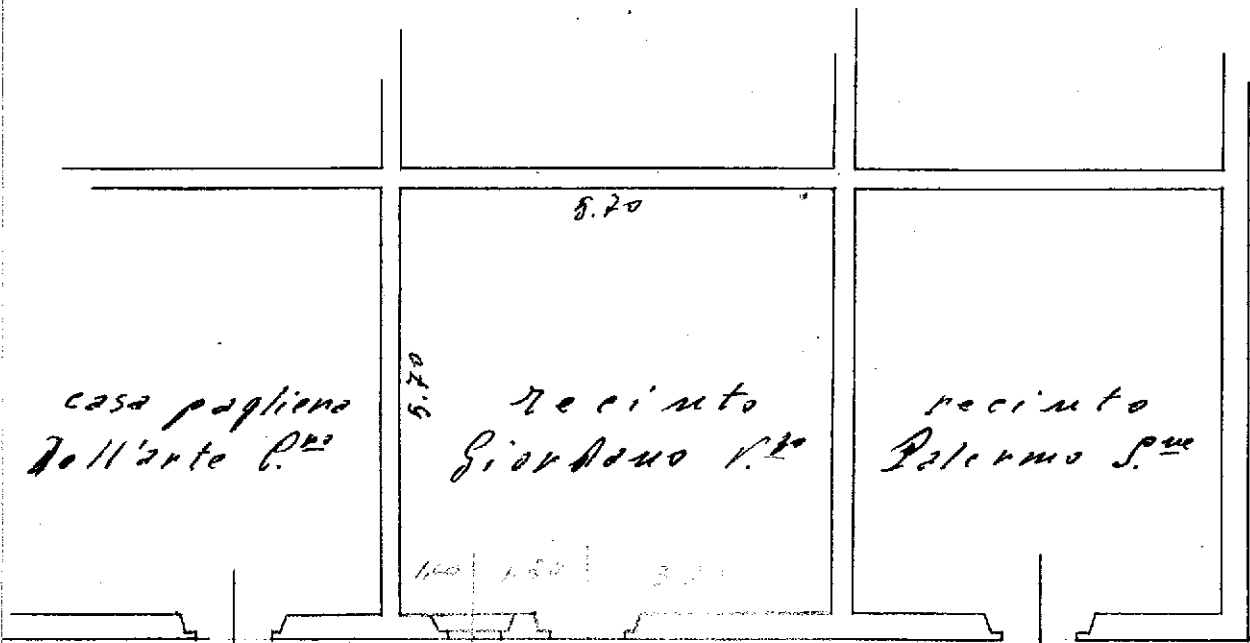 5.70
5.70
casa pagliena
Dell'arte C.mo
recinto
Giordano V.zo
recinto
Palermo S.me
1,00